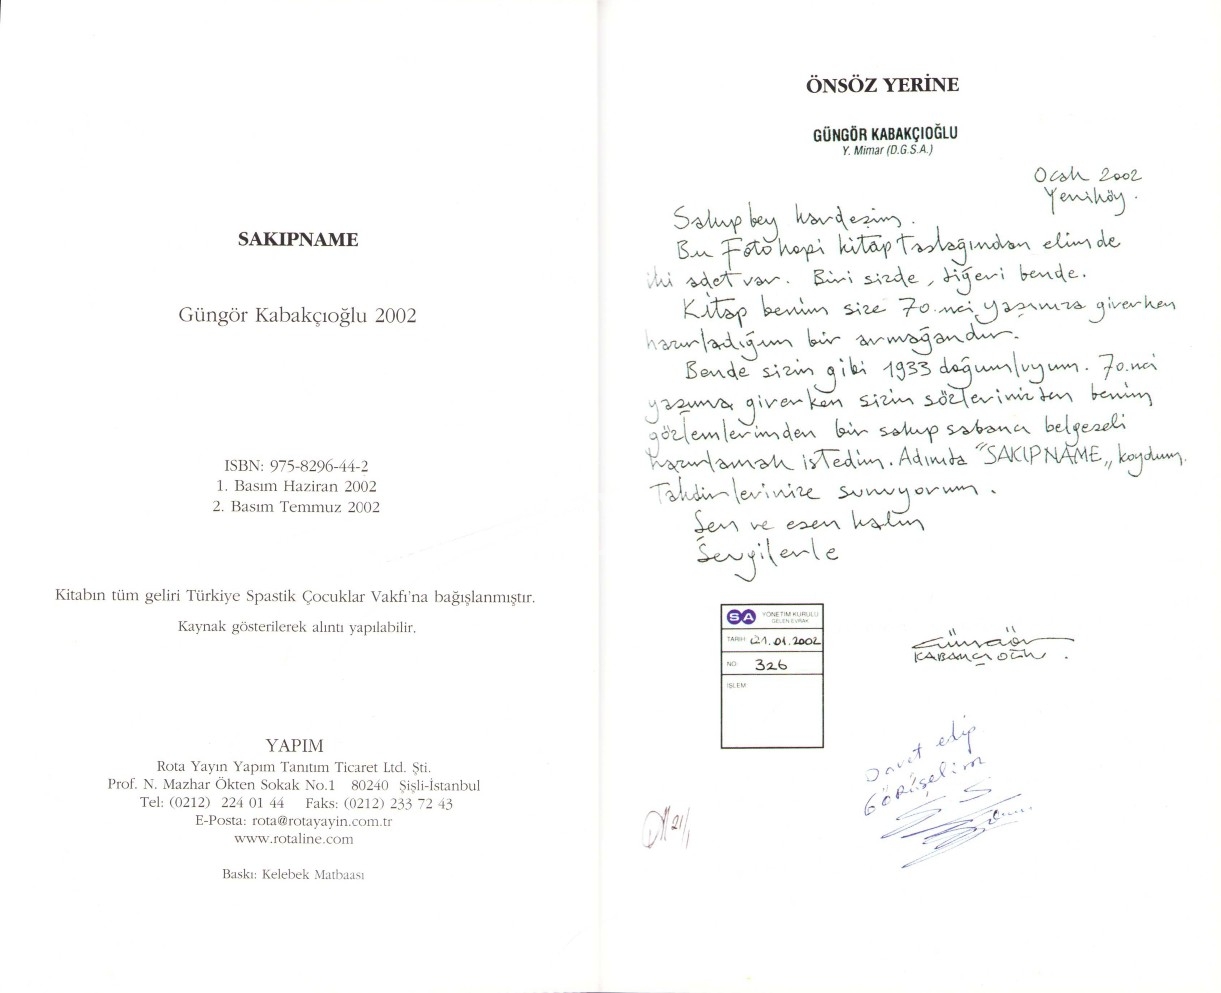 SAKIPNAME
Güngör Kabakçıoğlu 2002
ISBN: 975-8296-44-2
1. Basım Haziran 2002
2. Basım Temmuz 2002
Kitabın tüm geliri Türkiye Spastik Çocuklar Vakfı'na bağışlanmıştır.
Kaynak gösterilerek alıntı yapılabilir.
YAPIM
Rota Yayın Yapım Tanıtım Ticaret Ltd. Şti.
Prof. N. Mazhar Ökten Sokak No.1 80240 Şişli-İstanbul
Tel: (0212) 224 01 44 Faks: (0212) 233 72 43
E-Posta: rota@rotayayin.com.tr
www.rotaline.com
Baskı: Kelebek Matbaası
ÖNSÖZ YERİNE
GÜNGÖR KABAKÇIOĞLU
Y. Mimar (D.G.S.A.)
Ocak 2002
Yeniköy.
Sakıp bey kardeşim.
Bu Fotokopi kitap taslağından elimde
iki adet var. Biri sizde, diğeri bende.
Kitap benim size 70.nci yaşınıza girerken
hazırladığım bir armağandır.
Bende sizin gibi 1933 doğumluyum. 70.nci
yaşıma girerken sizin sözlerinizden benim
gözlemlerimden bir sakıp sabancı belgeseli
hazırlamak istedim. Adınıda "SAKIPNAME„ koydum.
Takdirlerinize sunuyorum.
Şen ve esen kalın
Sevgilerle
SA YÖNETİM KURULU
GELEN EVRAK
TARİH: 21.01.2002
NO: 326
İŞLEM:
GÜNGÖR
KABAKÇIOĞLU.
Davet edip
GÖRÜŞELİM
21/1